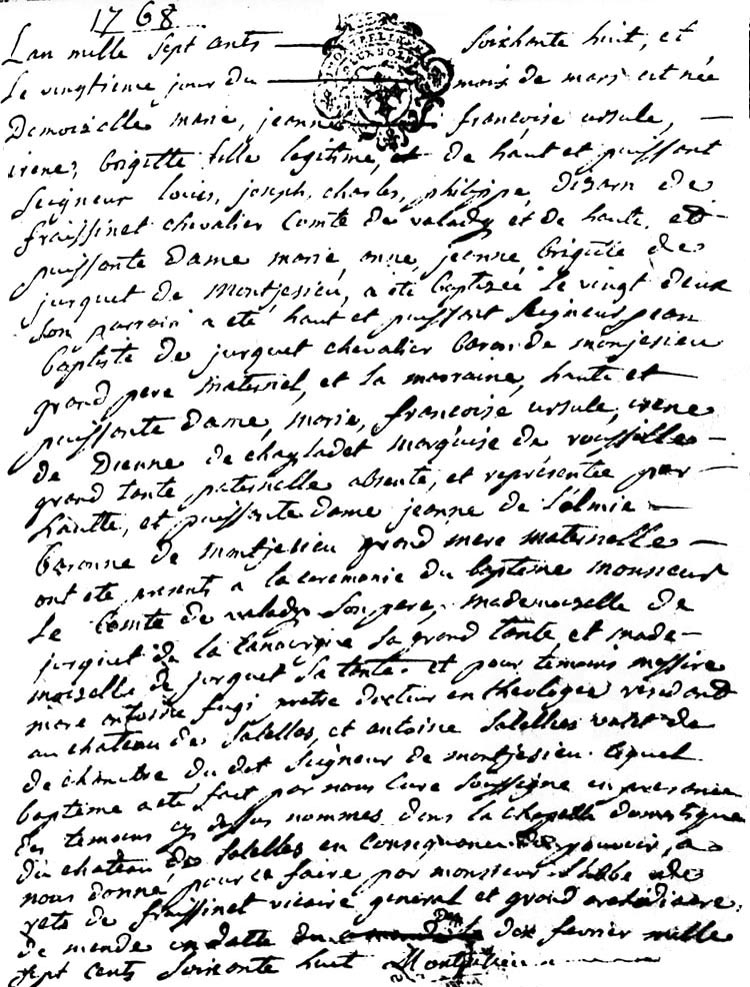 1768
Lan mille sept cents soixhante huit, et
Le vingtieme jour du mois de mars est née
Demoiselle marie, jeanne francoise ursule,
irene, brigitte fille legitime, et de haut et puissant
Seigneur louis, joseph, charles, philippe, dizarn de
fraissinet chevalier Comte de valady et de haute, et
puissante dame marie anne, jeanne brigitte de
jurquet de montjesieu, a été baptizée le vingt deux
Son parrain a eté haut et puissant Seigneur jean
baptiste de jurquet chevalier baron de monjesieu
grand pere maternel, et la marraine, haute et
puissante dame, marie, francoise ursule, irene
de Dienne de chayladet marquise de roussille
grand tante paternelle absente, et représentée par
haute, et puissante dame jeanne de Selmie
baronne de montjesieu grand mere maternelle
ont eté presents a la ceremonie du baptême monsieur
Le Comte de valady Son pere, mademoiselle de
jurquet de la Canourgue Sa grand tante, et made-
moiselle de jurquet Sa tante. et pour temoins messire
marc antoine pretre docteur en theologie residant
au chateau de Salelles, et antoine valet de
de chambre du dit Seigneur de montjesieu. lequel
baptême a eté fait par nous Curé Soussigné en presance
des temoins cy dessus nommés dans la chapelle domestique
du chateau de Salelles en Consequance du pouvoir, a
nous donné pour ce faire par monsieur l'abbe de
de fraissinet vicaire general et grand archidiacre
de mende en datte du dix fevrier mille
sept cents Soixante huit